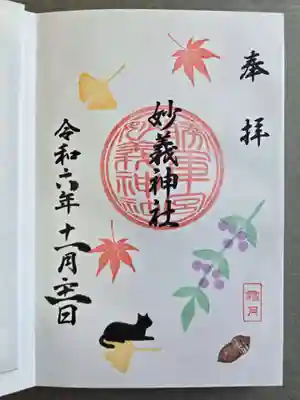 奉拝
妙義神社
令和六年十一月
霜月